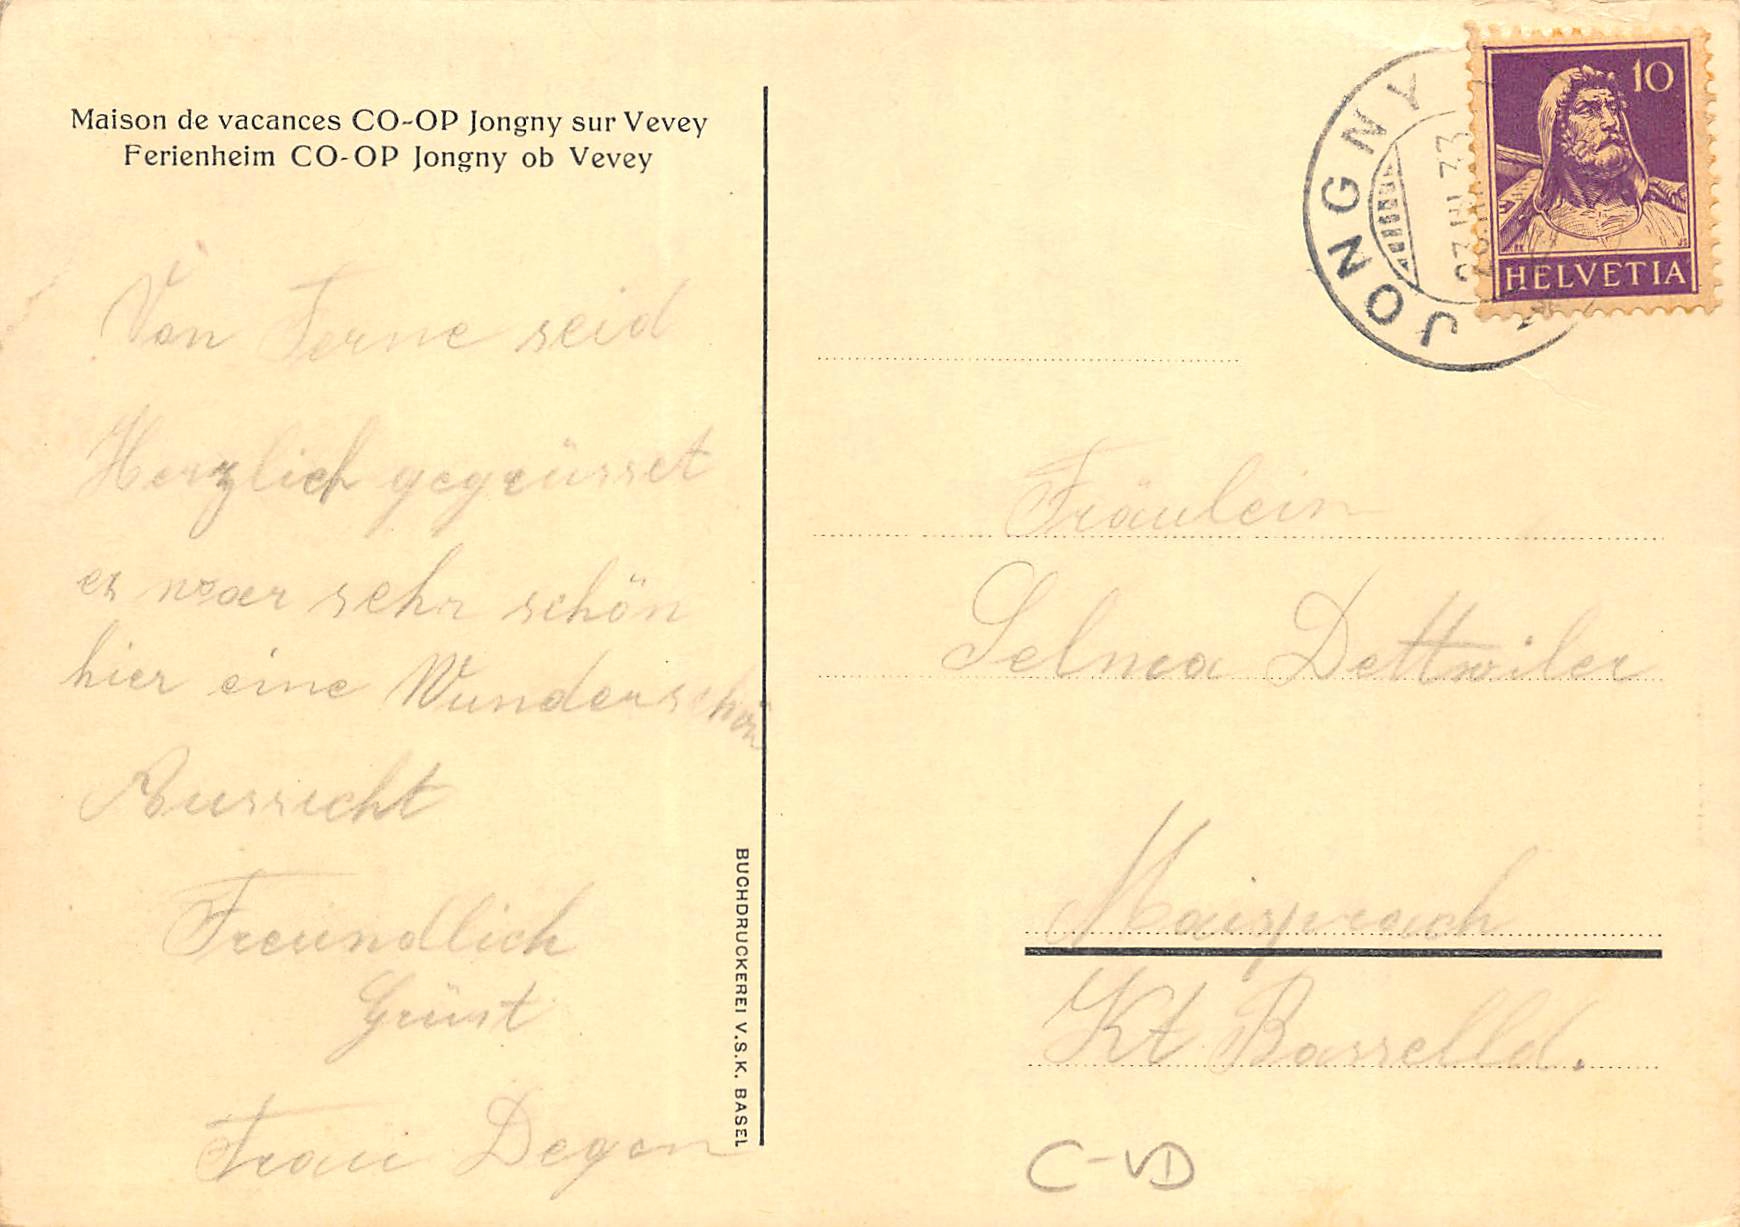 Maison de vacances CO-OP Jongny sur Vevey
Ferienheim CO-OP Jongny ob Vevey
Von Ferne seid
Herzlich gegrüsset
es war sehr schön
hier eine Wunderschön
Aussicht
Freundlich
Grüst
Frau Degen
BUCHDRUCKEREI V.S.K. BASEL
JONGNY
10
HELVETIA
Fräulein
Selma Dettwiler
Maisprach
Kt Basselld.
C-VD